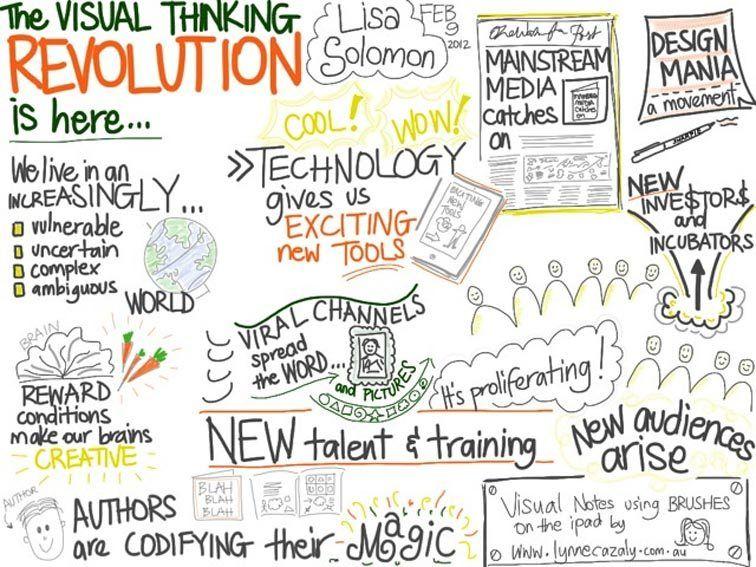 The VISUAL THINKING
REVOLUTION
is here...
Lisa
Solomon
FEB
9
2012
MAINSTREAM
MEDIA
catches
on
MAINSTREAM
MEDIA
catches
on
DESIGN
MANIA
a movement
SHARPIE
COOL!
WOW!
We live in an
INCREASINGLY...
vulnerable
uncertain
complex
ambiguous
WORLD
>> TECHNOLOGY
gives us
EXCITING
new TOOLS
EXCITING
NEW
TOOLS
NEW
INVE$TOR$
and
INCUBATORS
BRAIN
REWARD
conditions
make our brains
CREATIVE
VIRAL CHANNELS
spread
the WORD...
and PICTURES
It's proliferating!
NEW talent & training
New audiences
arise
AUTHOR
AUTHORS
are CODIFYING their
Magic
BLAH
BLAH
BLAH
Visual Notes using BRUSHES
on the ipad by
www.lynnecazaly.com.au